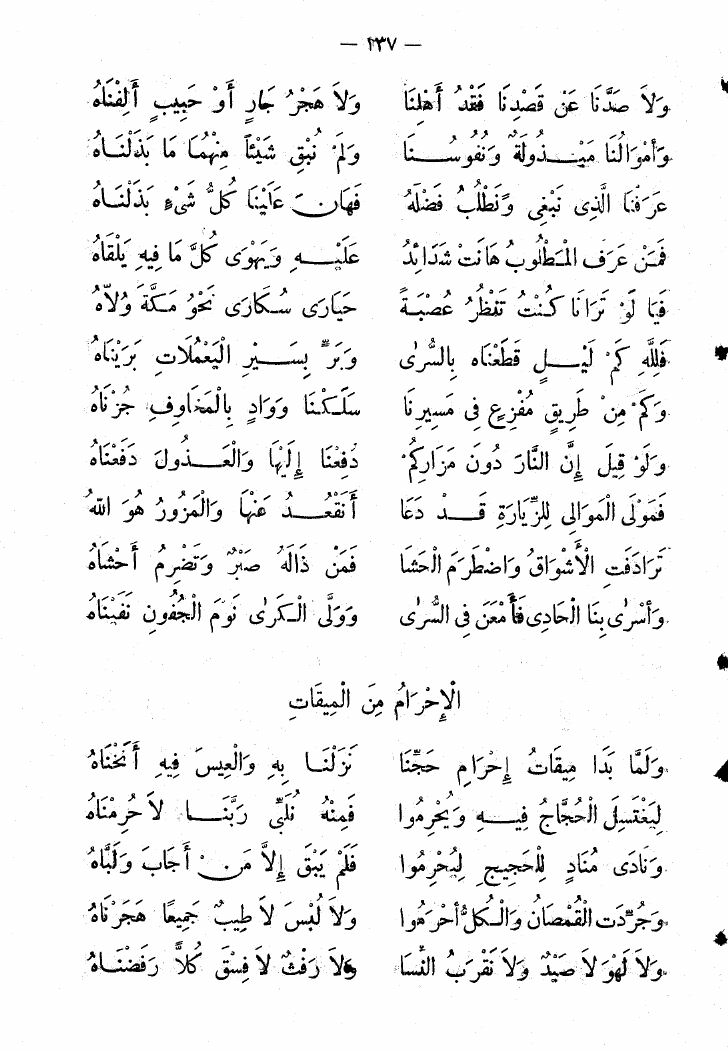 — ٢٣٧ —
وَلاَ صَدَّنَا عَنْ قَصْدِنَا فَقْدُ أَهْلِنَا وَلاَ هَجْرُ جَارٍ أَوْ حَبِيبٍ أَلِفْنَاهُ
وَأَمْوَالُنَا مَبْذُولَةٌ وَنُفُوسُنَا وَلَمْ نُبْقِ شَيْئاً مِنْهُمَا مَا بَذَلْنَاهُ
عَرَفْنَا الَّذِى نَبْغِى وَنَطْلُبُ فَضْلَهُ فَهَانَ عَلَيْنَا كُلُّ شَىْءٍ بَذَلْنَاهُ
فَمَنْ عَرَفَ الْمَطْلُوبَ هَانَتْ شَدَائِدُ عَلَيْهِ وَيَهْوَى كُلَّ مَا فِيهِ يَلْقَاهُ
فَيَا لَوْ تَرَانَا كُنْتَ تَنْظُرُ عُصْبَةً حَيَارَى سُكَارَى نَحْوَ مَكَّةَ وُلاَّهُ
فَلِلَّهِ كَمْ لَيْلٍ قَطَعْنَاه بِالسُّرَى وَبَرٍّ بِسَيْرِ الْيَعْمُلاَتِ بَرَيْنَاهُ
وَكَمْ مِنْ طَرِيقٍ مُفْزِعٍ فِى مَسِيرِنَا سَلَكْنَا وَوَادٍ بِالْمَخَاوِفِ جُزْنَاهُ
وَلَوْ قِيلَ إِنَّ النَّارَ دُونَ مَزَارِكُمْ دُفِعْنَا إِلَيْهَا وَالْعَذُولَ دَفَعْنَاهُ
فَمَوْلَى الْمَوَالِى لِلزِّيَارَةِ قَدْ دَعَا أَنَقْعُدُ عَنْهَا وَالْمَزُورُ هُوَ اللهُ
تَرَادَفَتِ الْأَشْوَاقُ وَاضْطَرَمَ الْحَشَا فَمَنْ ذَالَهُ صَبْرٌ وَتَضْرِمُ أَحْشَاهُ
وَأَسْرَى بِنَا الْحَادِى فَأَمْعَنَ فِى السُّرَى وَوَلَّى الْكَرَى نَوْمَ الْجُفُونِ نَفَيْنَاهُ
الْإِحْرَامُ مِنَ الْمِيقَاتِ
وَلَمَّا بَدَا مِيقَاتُ إِحْرَامِ حَجِّنَا نَزَلْنَا بِهِ وَالْعِيسَ فِيهِ أَنَخْنَاهُ
لِيَغْتَسِلَ الْحُجَّاجُ فِيهِ وَيُحْرِمُوا فَمِنْهُ نُلَبِّى رَبَّنَا لاَ حُرِمْنَاهُ
وَنَادَى مُنَادٍ لِلْحَجِيجِ لِيُحْرِمُوا فَلَمْ يَبْقَ إِلاَّ مَنْ أَجَابَ وَلَبَّاهُ
وَجُرِّدَت الْقُمْصَانُ وَالْكُلُّ أَحْرَمُوا وَلاَ لُبْسَ لاَ طِيبٌ جَمِيعًا هَجَرْنَاهُ
وَلاَ لَهْوَ لاَ صَيْدٌ وَلاَ نَقْرَبُ النِّسَا وَلاَ رَفَثٌ لاَ فِسْقَ كُلاًّ رَفَضْنَاهُ